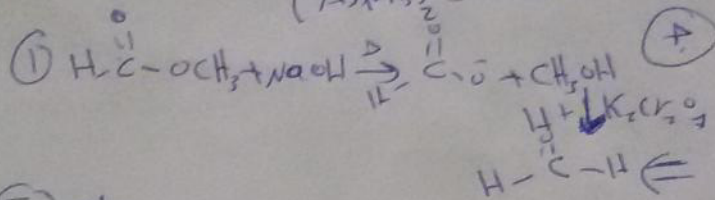 O
① H-C-OCH₃+NaOH →Δ C-Ō + CH₃OH
H⁺ ↓ K₂Cr₂O₇
H-C-H